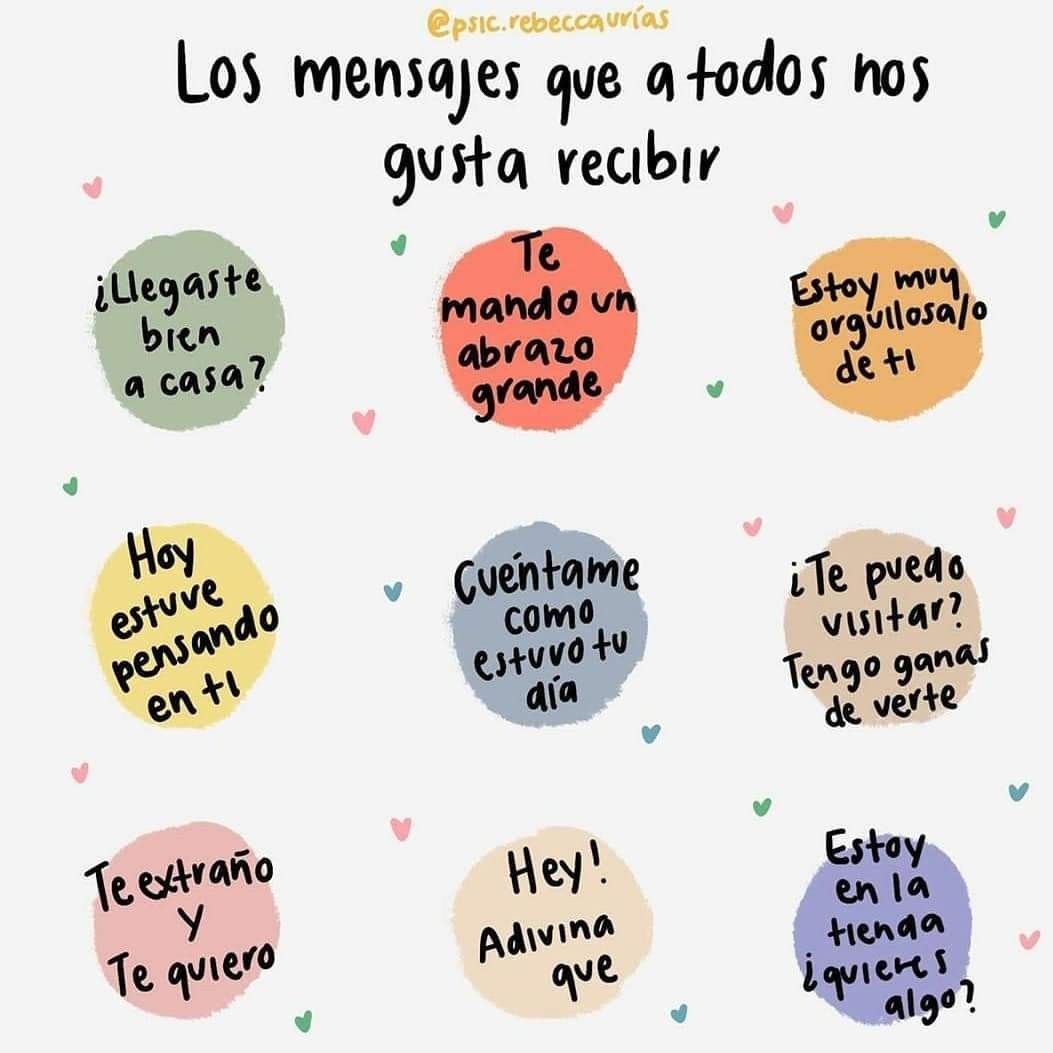 @psic.rebeccaurías
Los mensajes que a todos nos
gusta recibir
¿Llegaste
bien
a casa?
Te
mando un
abrazo
grande
Estoy muy
orgullosa/o
de ti
Hoy
estuve
pensando
en ti
Cuéntame
como
estuvo tu
día
¿Te puedo
visitar?
Tengo ganas
de verte
Te extraño
y
Te quiero
Hey!
Adivina
que
Estoy
en la
tienda
¿quieres
algo?